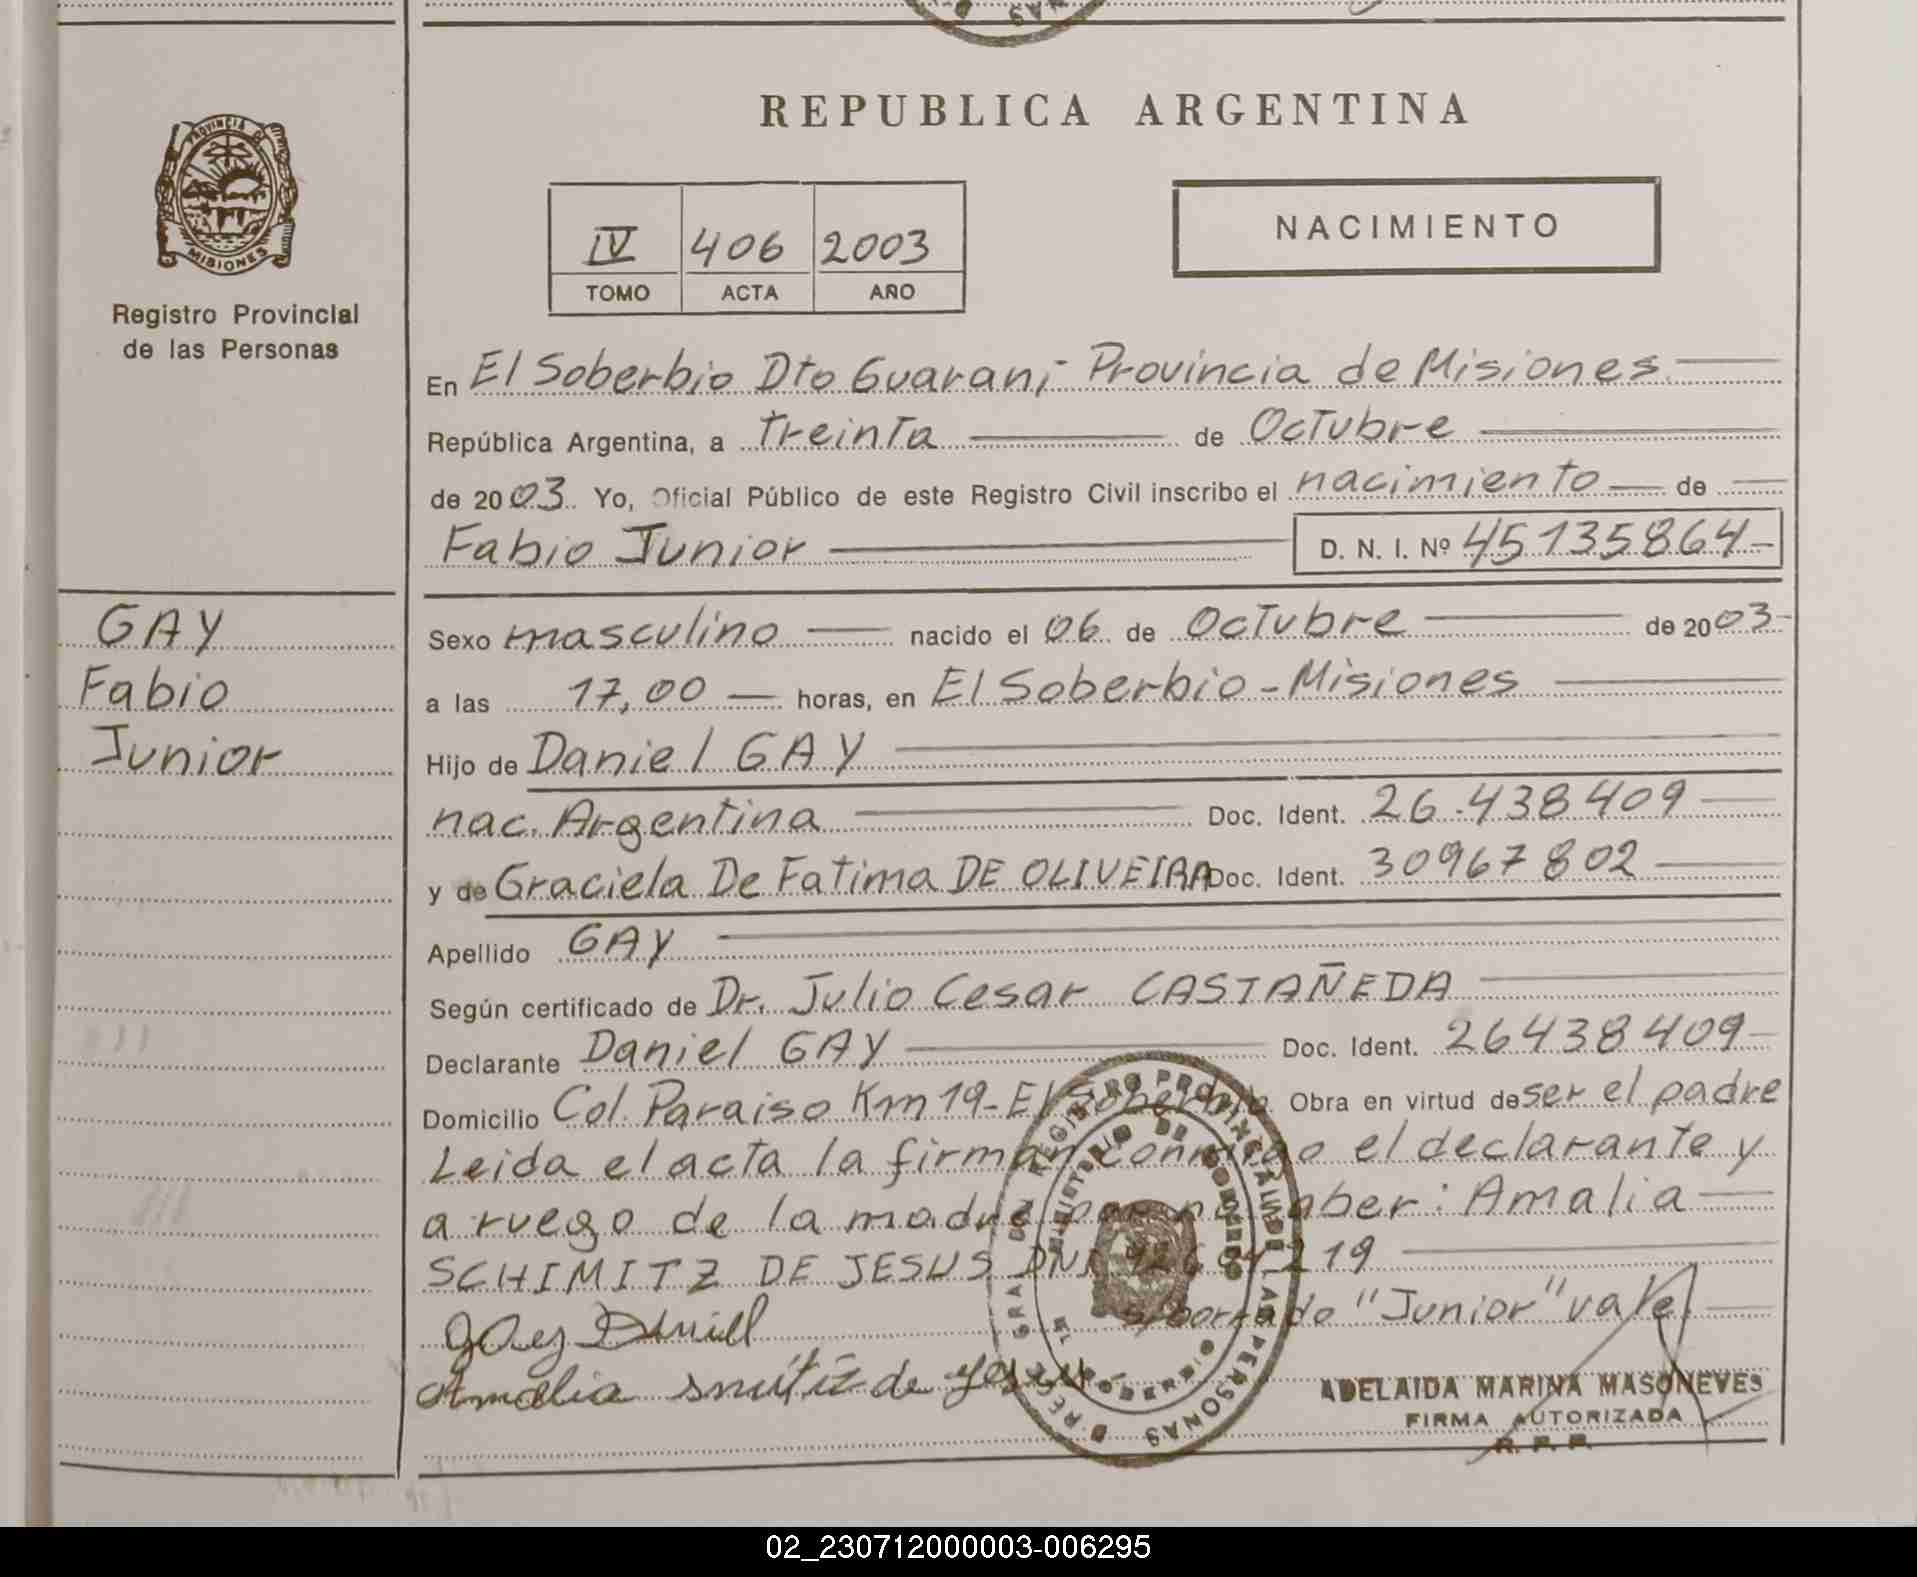 REPUBLICA ARGENTINA
PROVINCIA DE
MISIONES
Registro Provincial
de las Personas
IV 406 2003
TOMO ACTA AÑO
NACIMIENTO
En El Soberbio Dto Guaraní Provincia de Misiones
República Argentina, a treinta de Octubre
de 2003. Yo, Oficial Público de este Registro Civil inscribo el nacimiento de
Fabio Junior D. N. I. Nº 45135864
GAY
Fabio
Junior
Sexo masculino nacido el 06 de Octubre de 2003
a las 17,00 horas, en El Soberbio - Misiones
Hijo de Daniel GAY
nac. Argentina Doc. Ident. 26.438409
y de Graciela De Fatima DE OLIVEIRA Doc. Ident. 30967802
Apellido GAY
Según certificado de Dr. Julio Cesar CASTAÑEDA
Declarante Daniel GAY Doc. Ident. 26438409
Domicilio Col. Paraiso Km 19 - El Soberbio Obra en virtud de ser el padre
Leida el acta la firman conmigo el declarante y
a ruego de la madre por no saber: Amalia
SCHIMITZ DE JESUS DNI
s/borrado "Junior" vale.
Amalia de
ADELAIDA MARINA MASONEVES
FIRMA AUTORIZADA
R. P. P.
REGISTRO PROVINCIAL DE LAS PERSONAS
MINISTERIO DE GOBIERNO
02_230712000003-006295